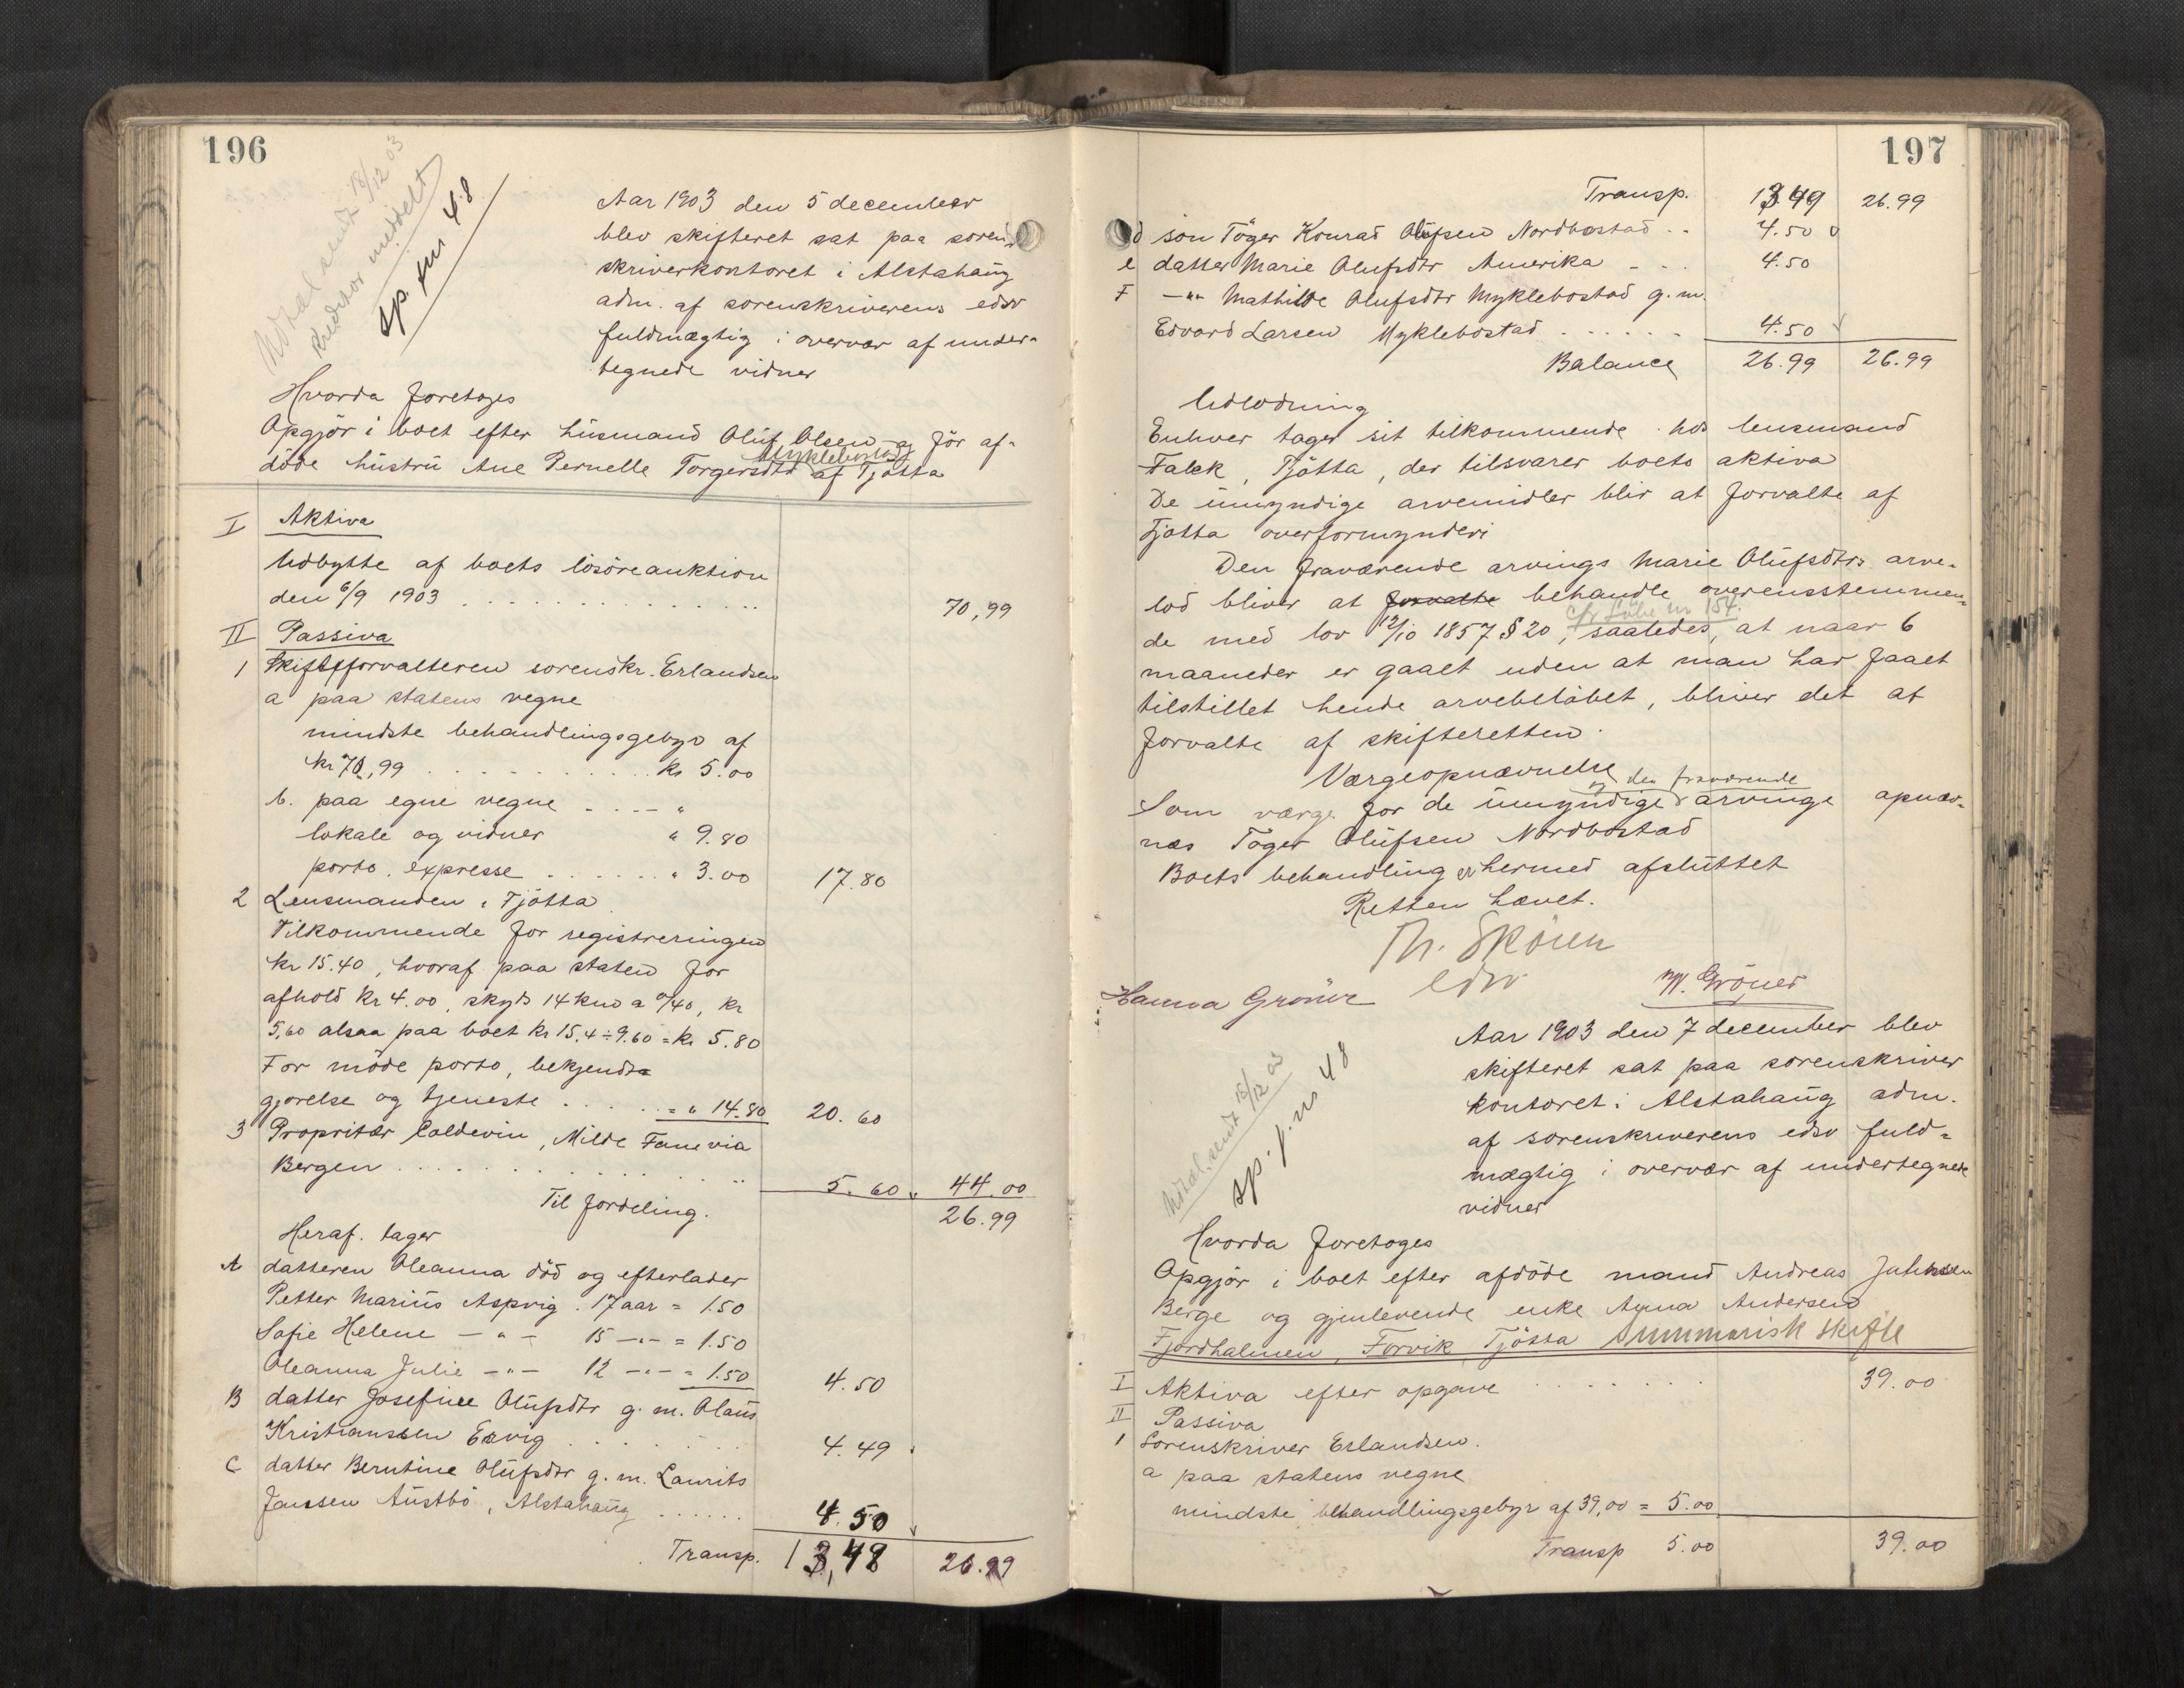 196
Udtal. sendt 18/12 03
Kreditor meddelt
sp. jur 48
Aar 1903 den 5 december
blev skifteret sat paa soren-
skriverkontoret i Alstahaug
adm. af sorenskriverens edsv
fuldmægtig i overvær af under-
tegnede vidner
Hvorda foretoges
Opgjör i boet efter husmand Oluf Olsen og för af-
Myklebostad
döde hustru Ane Pernelle Torgersdtr af Tjötta
I Aktiva
Udbytte af boets lösöreauktion
den 6/9 1903 . . . . . 70,99
II Passiva
1 Skifteforvalteren sorenskr. Erlandsen
a paa statens vegne
mindste behandlingsgebyr af
kr 70,99 . . . . kr 5.00
b. paa egne vegne . . . "
lokale og vidner " 9.80
porto, expresse . . . . " 3.00 17.80
2 Lensmanden i Tjötta
Tilkommende for registreringen
kr 15.40, hvoraf paa staten for
afhold kr 4.00, skyds 14 km a 0/40, kr
5,60 alsaa paa boet kr 15.4 ÷ 9.60 = kr 5.80
For möde porto, bekjendt-
gjorelse og tjeneste . . . = " 14.80 20.60
3 Propritær Coldevin, Milde Fane via
Bergen . . . . . 5.60 44.00
Til fordeling. 26.99
Heraf. tager
A datteren Oleanna död og efterlader
Petter Marius Aspvig. 17 aar = 1.50
Sofie Helene — " — 15 — " — = 1.50
Oleanna Julie — " — 12 — " — = 1.50 4.50
B datter Josefine Olufsdtr g. m. Olaus
Kristianssen Ervig . . . . 4.49
C datter Berntine Olufsdtr g. m. Laurits
Janssen Austbö, Alstahaug . . . . 4.50
Transp. 13,49 26.99
197
Transp. 1349 26.99
d sön Töger Konrad Olufsen Nordbostad . . 4.50
e datter Marie Olufsdtr Amerika . . . 4.50
F — " — Mathilde Olufsdtr Myklebostad g. m.
Edvard Larsen Myklebostad . . . . . 4.50
Balance 26.99 26.99
Udlodning
Enhver tager sit tilkommende hos lensmand
Falck, Tjötta, der tilsvarer boets aktiva
De umyndige arvemidler blir at forvalte af
Tjøtta overformynderi
Den fraværende arvings Marie Olufsdtrs arve-
lod bliver at forvalte behandle overensstemmen-
cfr Löbe nr 154.
de med lov 12/10 1857 § 20, saaledes, at naar 6
maaneder er gaaet uden at man har faaet
tilstillet hende arvebelöbet, bliver det at
forvalte af skifteretten.
Værgeopnævnelse
og den fraværende
Som værge for de umyndige arvinge opnæv-
nes Töger Olufsen Nordbostad
Boets behandling er hermed afsluttet
Retten hævet.
Th. Skören
edsv
Hanna Gröner
M. Gröner
Udtal. sendt 18/12 03
sp. j. nr 48
Aar 1903 den 7 december blev
skifteret sat paa sorenskriver
kontoret i Alstahaug adm.
af sorenskriverens edsv fuld-
mægtig i overvær af undertegnede
vidner
Hvorda foretoges
Opgjör i boet efter afdöde mand Andreas Johnsen
Berge og gjenlevende enke Anna Andersen
Fjordhalmen, Forvik Tjötta Summarisk skifte
I Aktiva efter opgave . . . . . . . 39.00
II Passiva
1 Sorenskriver Erlandsen.
a paa statens vegne
mindste behandlingsgebyr af 39,00 = 5.00
Transp 5.00 39.00